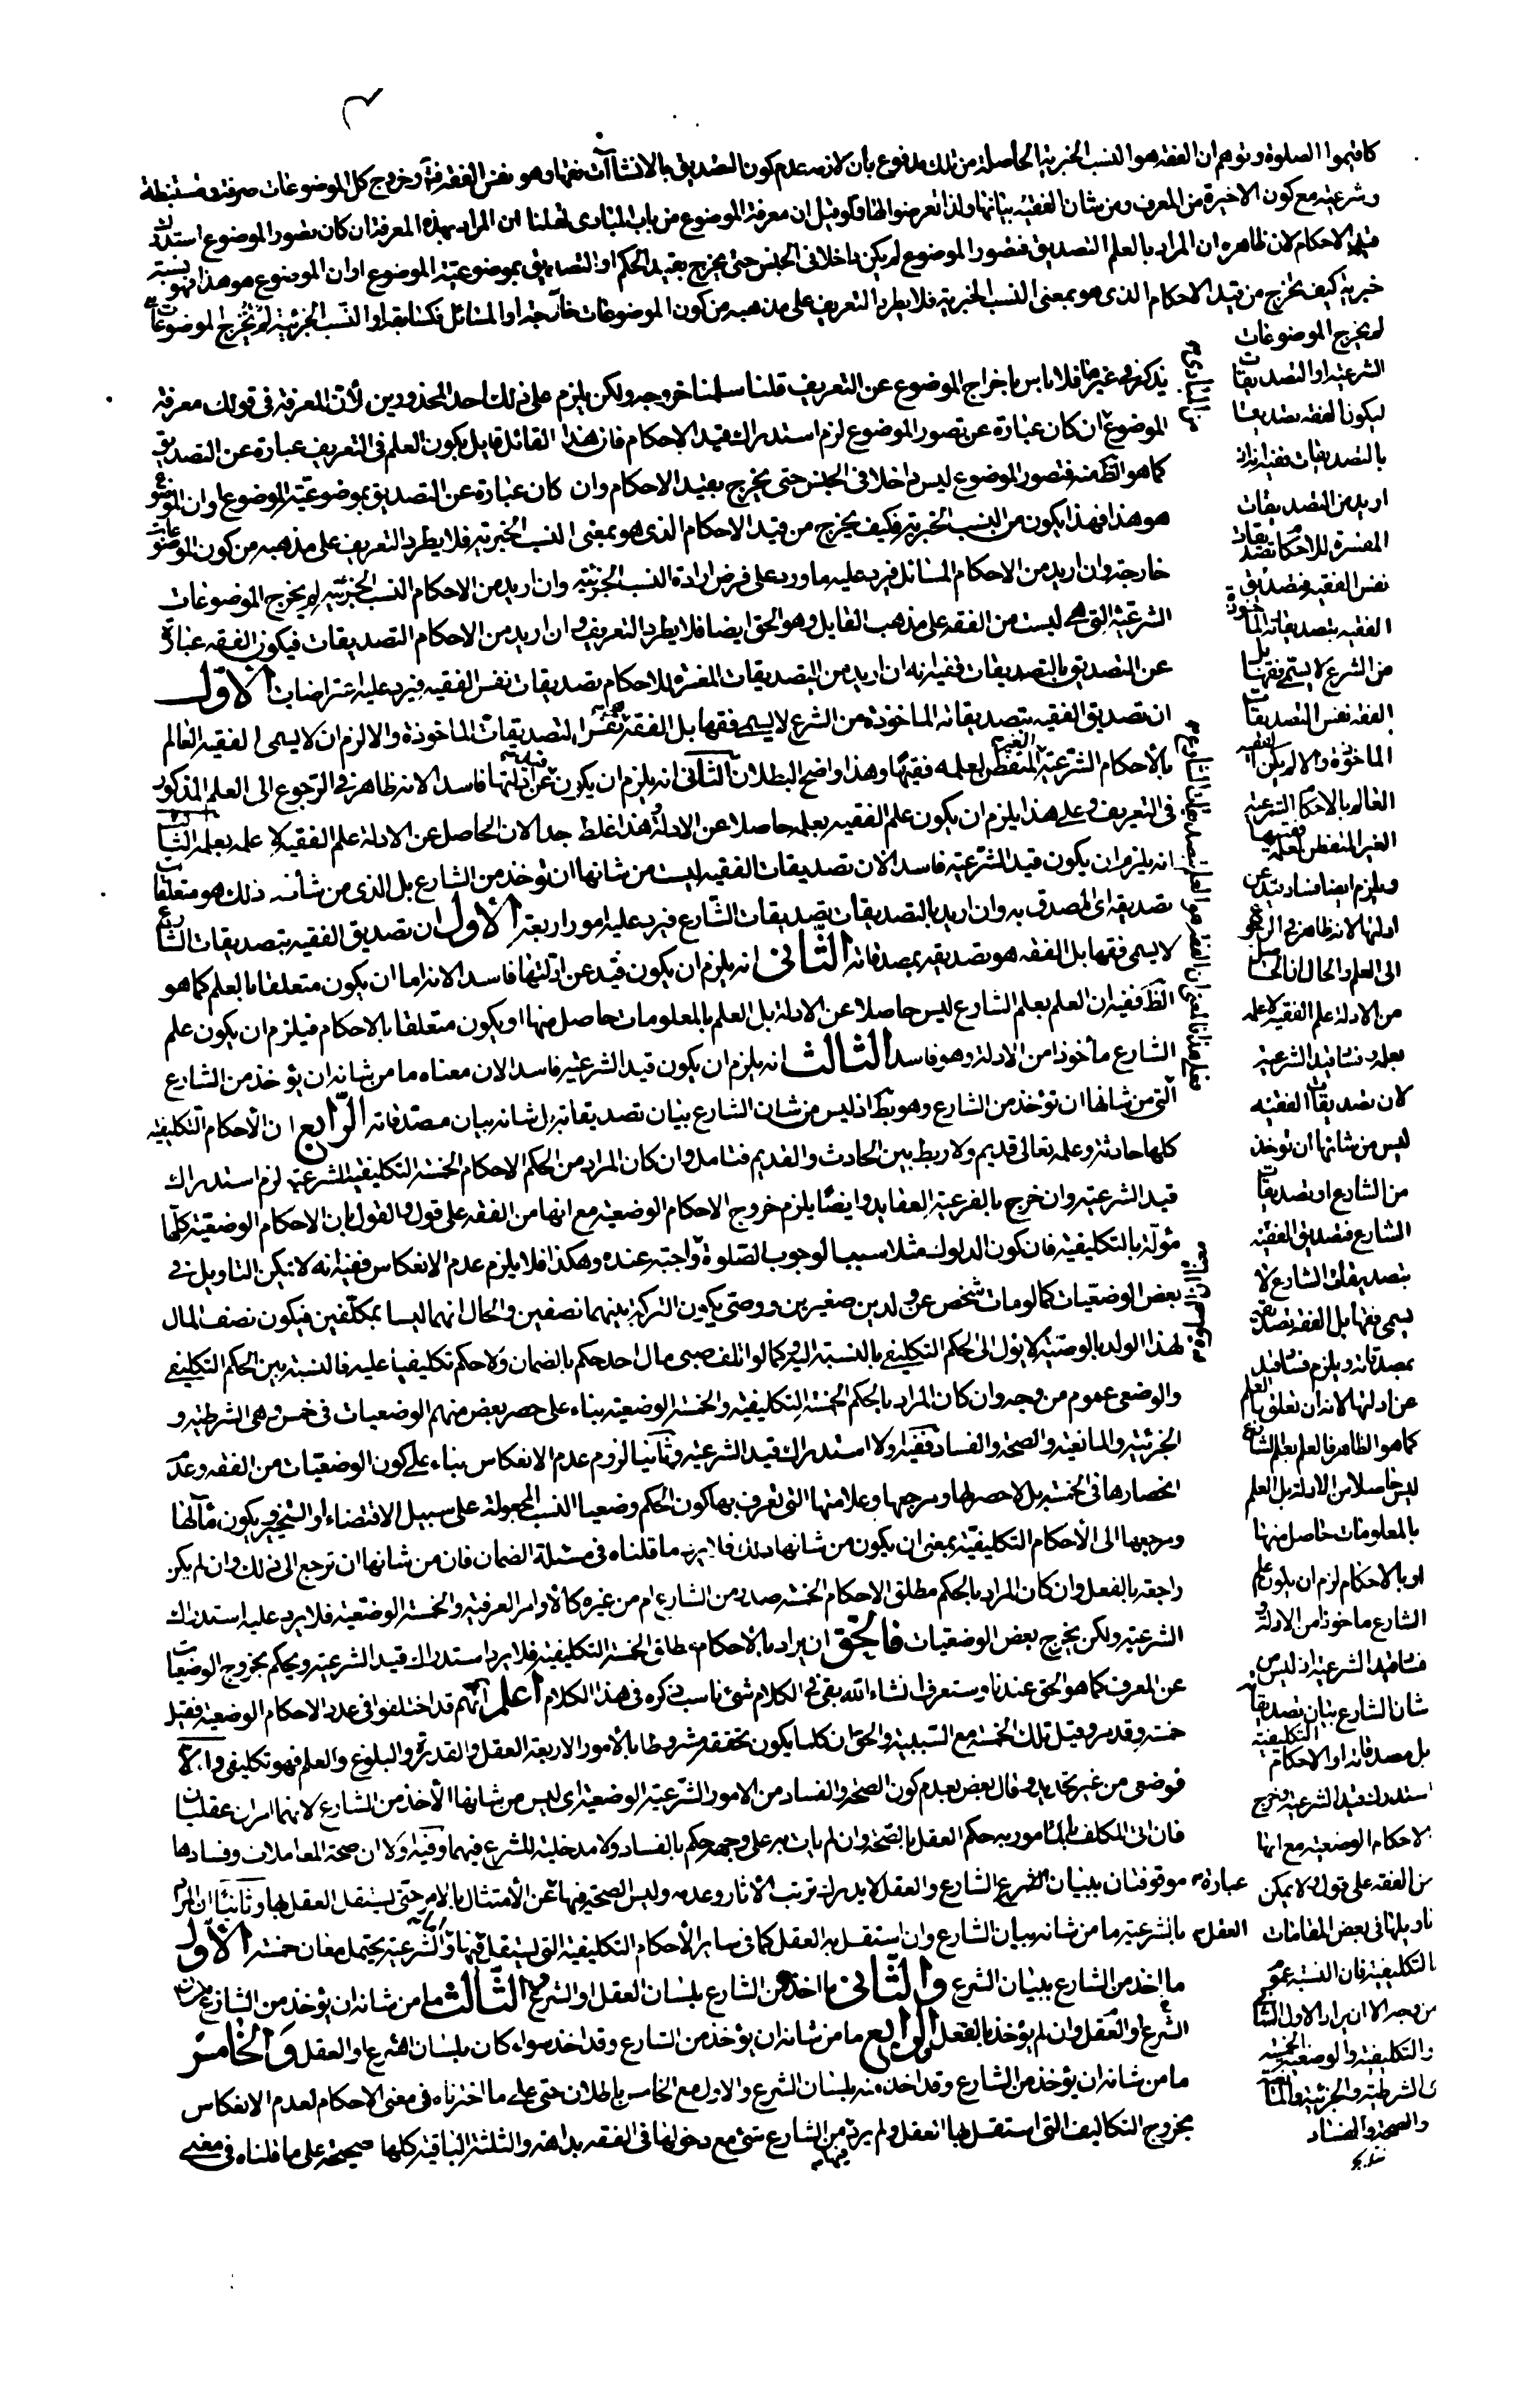 كاقيموا الصلوة وتوهم ان الفقه هو النسب الخبرية الحاصلة من تلك مدفوع بان لازمه عدم كون التصديق بالانشاآت فقها وهو نفس الفقه وخروج كل الموضوعات صرفة ومستنبطة
وشرعية مع كون الاخيرة من المعرف ومن شان الفقيه بيانها ولذا تعرضوا لها ولو قيل ان معرفة الموضوع من باب المبادى لقلنا ان المراد بهذه المعرفة ان كان تصور الموضوع استدرك
قيد الاحكام لان ظاهره ان المراد بالعلم التصديق فتصور الموضوع لم يكن داخلا فى الجنس حتى يخرج بقيد الحكم او التصديق بموضوعية الموضوع او ان الموضوع هو هذا فهو نسبته
خبرية كيف تخرج من قيد الاحكام الذى هو بمعنى النسب الخبرية فلا يطرد التعريف على مذهبه من كون الموضوعات خارجة او المسائل فكسابقه او النسب الجزئية لم يخرج الموضوعات
يذكر فى غيرها فلا باس باخراج الموضوع عن التعريف قلنا سلمنا خروجه ولكن يلزم على ذلك احد المحذورين لأن المعرفة فى قولك معرفة
الموضوع ان كان عبارة عن تصور الموضوع لزم استدراك قيد الاحكام فان هذا القائل قايل بكون العلم فى التعريف عبارة عن التصديق
كما هو الظ منه فتصور الموضوع ليس داخلا فى الجنس حتى يخرج بقيد الاحكام وان كان عبارة عن التصديق بموضوعية الموضوع او ان الموضوع
هو هذا فهذا يكون من النسب الخبرية فكيف يخرج من قيد الاحكام الذى هو بمعنى النسب الخبرية فلا يطرد التعريف على مذهبه من كون الموضوعات
خارجة وان اريد من الاحكام المسائل فيرد عليه ما ورد على فرض ارادة النسب الجزئية وان اريد من الاحكام النسب الجزئية لم يخرج الموضوعات
الشرعية التى هى ليست من الفقه على مذهب القايل وهو الحق ايضا فلا يطرد التعريف وان اريد من الاحكام التصديقات فيكون الفقه عبارة
عن التصديق بالتصديقات ففيه انه ان اريد من التصديقات المفسرة للاحكام تصديقات نفس الفقيه فيرد عليه اعتراضات الاول
ان تصديق الفقيه بتصديقاته الماخوذة من الشرع لا يسمى فقها بل الفقه نفس التصديقات الماخوذة والا لزم ان لا يسمى الفقيه العالم
بالأحكام الشرعية المتفطن لعلمه فقيها وهذا واضح البطلان الثانى انه يلزم ان يكون عن ادلتها فاسدا لانه ظاهر فى الرجوع الى العلم المذكور
فى التعريف وعلى هذا يلزم ان يكون علم الفقيه بعلمه حاصلا عن الادلة وهذا غلط جدا لان الحاصل عن الادلة علم الفقيه لا علمه بعلمه الثالث
انه يلزم ان يكون قيد الشرعية فاسدا لان تصديقات الفقيه ليست من شانها ان توخذ من الشارع بل الذى من شأنه ذلك هو متعلقات
تصديقه اى المصدق به وان اريد بالتصديقات تصديقات الشارع فيرد عليه امور اربعة الاول ان تصديق الفقيه بتصديقات الشارع
لا يسمى فقها بل الفقه هو تصديقه بمصدقاته الثانى انه يلزم ان يكون قيد عن ادلتها فاسدا لانه اما ان يكون متعلقا بالعلم كما هو
الظ ففيه ان العلم بعلم الشارع ليس حاصلا عن الادلة بل العلم بالمعلومات حاصل منها او يكون متعلقا بالاحكام فيلزم ان يكون علم
الشارع مأخوذا من الادلة وهو فاسد الثالث انه يلزم ان يكون قيد الشرعية فاسدا لان معناه ما من شانه ان يؤخذ من الشارع
التى من شانها ان توخذ من الشارع وهو بط اذ ليس من شان الشارع بيان تصديقاته بل شانه بيان مصدقاته الرابع ان الأحكام التكليفية
كلها حادثة وعلمه تعالى قديم ولا ربط بين الحادث والقديم فتامل وان كان المراد من الحكم الاحكام الخمسة التكليفية الشرعية لزم استدراك
قيد الشرعية وان خرج بالفرعية العقايد وايضًا يلزم خروج الاحكام الوضعية مع انها من الفقه على قول والقول بان الاحكام الوضعية كلها
مؤلة بالتكليفية فان كون الدلوك مثلا سببا لوجوب الصلوة واجبة عنده وهكذا فلا يلزم عدم الانعكاس ففيه انه لا تمكن التاويل فى
بعض الوضعيات كما لو مات شخص عن ولدين صغيرين ووصى بكون التركة بينهما نصفين والحال انهما ليسا بمكلفين فيكون نصف المال
لهذا الولد بالوصية لا يؤل الى حكم التكليفى بالنسبة اليه وكما لو اتلف صبى مال احد حكم بالضمان ولا حكم تكليفيا عليه فالنسبة بين الحكم التكليفى
والوضعى عموم من وجه وان كان المراد بالحكم الخمسة التكليفية والخمسة الوضعية بناء على حصر بعض منهم الوضعيات فى خمس وهى الشرطية و
الجزئية والمانعية والصحة والفساد ففيه اولا استدراك قيد الشرعية وثانيا لزوم عدم الانعكاس بناء على كون الوضعيات من الفقه وعدم
انحصارها فى الخمسة بل لا حصر لها ومرجعها وعلامتها التى تعرف بها كون الحكم وضعيا النسب المجعولة على سبيل الاقتضاء او التخيير ويكون مآلها
ومرجعها الى الأحكام التكليفية بمعنى ان يكون من شانها ذلك فلا يرد ما قلناه فى مسئلة الضمان فان من شانها ان ترجع الى ذلك وان لم يكن
راجعه بالفعل وان كان المراد بالحكم مطلق الاحكام الخمسة صدر من الشارع ام من غيره كالأوامر العرفية والخمسة الوضعية فلا يرد عليه استدراك
الشرعية ولكن يخرج بعض الوضعيات فالحق ان يراد بالأحكام مطلق الخمسة التكليفية فلا يرد استدراك قيد الشرعية ويحكم بخروج الوضعيات
عن المعرف كما هو الحق عندنا وستعرف انشاء الله بقى فى الكلام شئ ناسب ذكره فى هذا الكلام اعلم انهم قد اختلفوا فى عدد الاحكام الوضعية فقيل
خمسة وقد مر وقيل تلك الخمسة مع السببية والحق ان كلما يكون تحققه مشروطا بالأمور الاربعة العقل والقدرة والبلوغ والعلم فهو تكليفى والا
فوضعى من غير تحديد وقال بعض بعدم كون الصحة والفساد من الامور الشرعية الوضعية اى ليس من شانها الأخذ من الشارع لانهما امران عقليان
فان اتى المكلف بالمامور به حكم العقل بالصحة وان لم يات به على وجهه حكم بالفساد ولا مدخلية للشرع فيهما وفيه اولا ان صحة المعاملات وفسادها
موقوفتان ببيان الشارع والعقل لا يدرك ترتب الأثار وعدمه وليس الصحة فيها عبارة عن الأمتثال بالامر حتى يستقل العقل بها وثانيًا ان المراد
بالشرعية ما من شانه بيان الشارع وان استقل به العقل كما فى ساير الأحكام التكليفية التى يستقل فيها العقل والشرعية يحتمل معان خمسة الأول
ما اخذ من الشارع ببيان الشرع والثانى ما اخذ من الشارع بلسان العقل او الشرع الثالث ما من شانه ان يؤخذ من الشارع
الشرع او العقل وان لم يؤخذ بالفعل الرابع ما من شانه ان يؤخذ من الشارع وقد اخذ سواء كان بلسان الشرع او العقل والخامس
ما من شانه ان يؤخذ من الشارع وقد اخذ منه بلسان الشرع والاول مع الخامس باطلان حتى على ما اخترناه فى معنى الاحكام لعدم الانعكاس
بخروج التكاليف التى استقل بها العقل ولم يرد فيها من الشارع شئ مع دخولها فى الفقه بداهة والثلثة الباقية كلها صحيحة على ما قلناه فى معنى
لم يخرج الموضوعات
الشرعية او التصديقات
ليكون الفقه تصديقا
بالتصديقات ففيه انه ان
اريد من التصديقات
المفسرة للاحكام تصديقات
نفس الفقيه فتصديق
الفقيه بتصديقاته الماخوذة
من الشرع لا يسمى فقها بل
الفقه نفس التصديقات
الماخوذة والا لم يكن الفقيه
العالم بالاحكام الشرعية
الغير المتفطن لعلمه فقيها
ويلزم ايضا فساد قيد عن
ادلتها لانه ظاهر فى الرجوع
الى العلم والحال ان الحاصل
من الادلة علم الفقيه لا علمه
بعلمه وفساد قيد الشرعية
لان تصديقات الفقيه
ليس من شانها ان توخذ
من الشارع او تصديقات
الشارع فتصديق الفقيه
بتصديقات الشارع لا
يسمى فقها بل الفقه تصديقه
بمصدقاته ويلزم فساد قيد
عن ادلتها لانه ان تعلق بالعلم
كما هو الظاهر فالعلم بعلم الشارع
ليس حاصلا من الادلة بل العلم
بالمعلومات حاصل منها
او بالاحكام لزم ان يكون علم
الشارع ماخوذا من الادلة و
فساد قيد الشرعية اذ ليس من
شان الشارع بيان تصديقاته
بل مصدقاته او الاحكام التكليفية
استدرك قيد الشرعية وخرج
الاحكام الوضعية مع انها
من الفقه على قول ولا يمكن
تاويلها فى بعض المقامات
بالتكليفية فان النسبة عموم
من وجه الا ان يراد الاول الشا
والتكليفية والوضعية الخمسة
اى الشرطية والجزئية والمانعية
والصحة والفساد